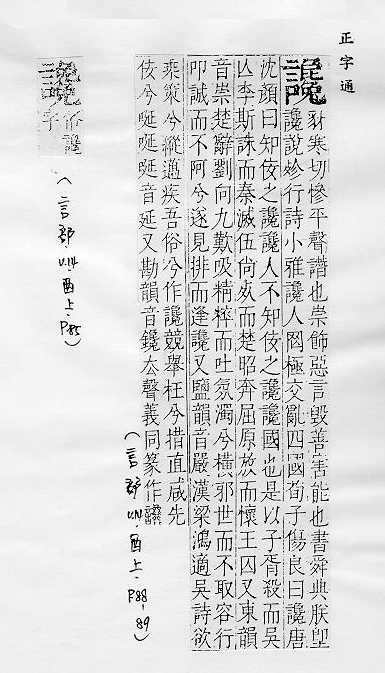 正字通
讒
豺寒切慘平聲譖也崇飾惡言毀善害能也書舜典朕堲
讒說殄行詩小雅讒人罔極交亂四國荀子傷良曰讒唐
沈顏曰知佞之讒讒人不知佞之讒讒國也是以子胥殺而吳
亾李斯誅而秦滅伍尚奻而楚昭奔屈原放而懷王囚又東韻
音崇楚辭劉向九歎吸精粹而吐氛濁兮橫邪世而不取容行
叩誠而不阿兮遂見排而逢讒又鹽韻音嚴漢梁鴻適吳詩欲
乘策兮縱邁疾吾俗兮作讒競舉枉兮措直咸先
佞兮唌唌唌音延又勘韻音鑱去聲義同篆作讒
(言部 酉上·P88-89)
(言部 酉上·P85)